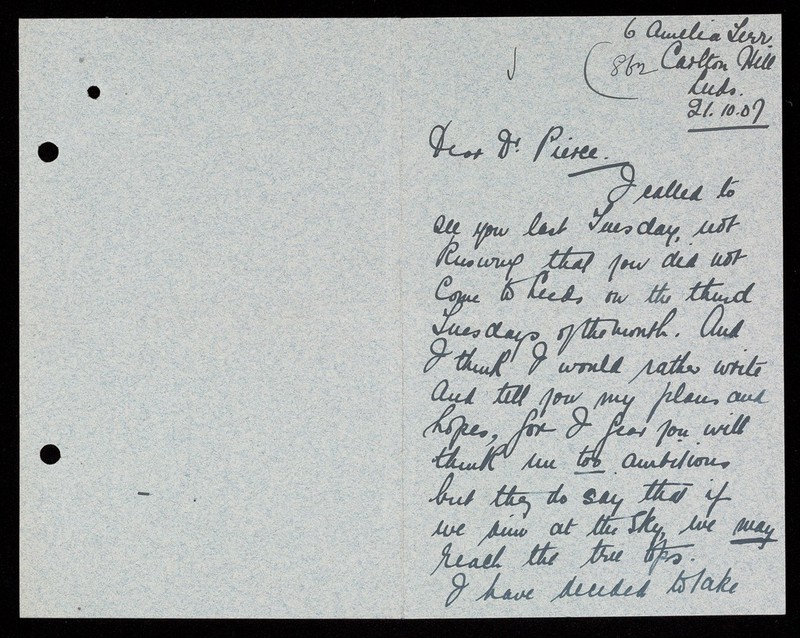 6 Amelia Terr.
862 Carlton Hill
Leeds.
21.10.07
Dear Dr. Pierce.
I called to
see you last Tuesday, not
knowing that you did not
come to Leeds on the third
Tuesdays of the month. And
I think I would rather write
And tell you my plans and
hopes, for I fear you will
think me too ambitious
but they do say that if
we aim at the sky, we may
reach the tree tops.
I have decided to take